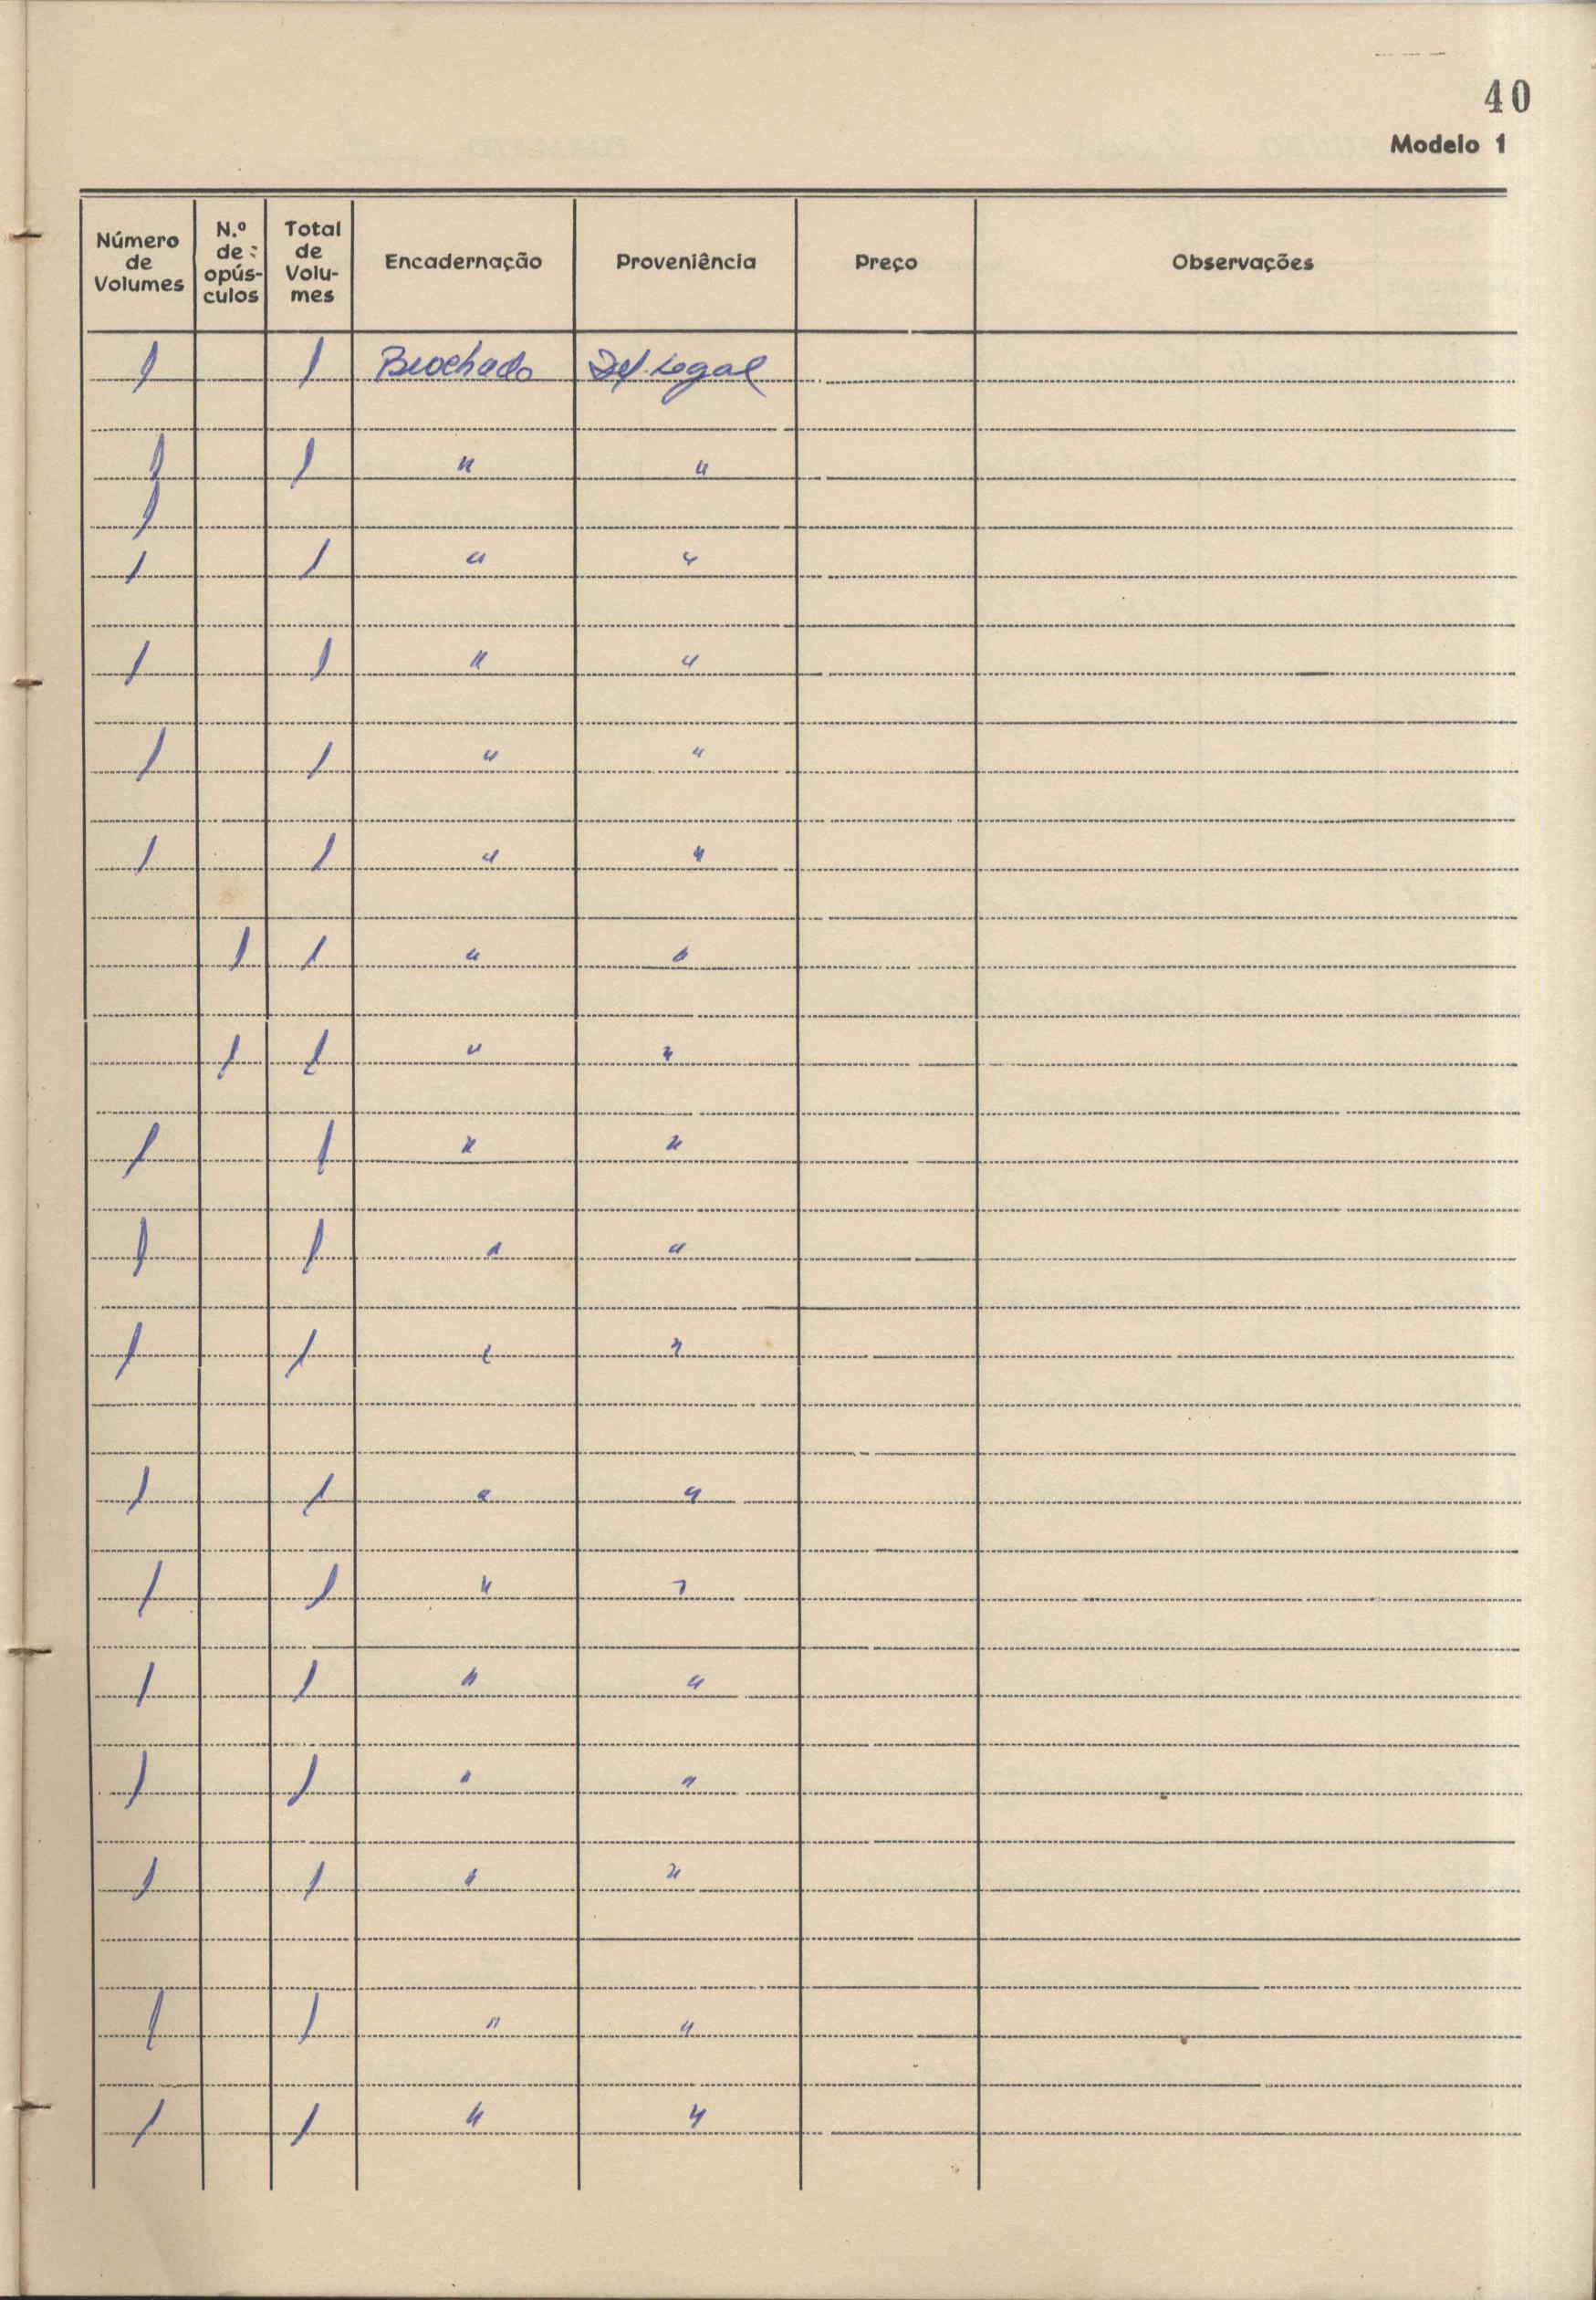 40
Modelo 1
Número de Volumes | N.º de opús-culos | Total de Volu-mes | Encadernação | Proveniência | Preço | Observações
1 | | 1 | Brochado | Dep. Legal
1 | | 1 | " | "
1
1 | | 1 | " | "
1 | | 1 | " | "
1 | | 1 | " | "
1 | | 1 | " | "
| 1 | 1 | " | "
| 1 | 1 | " | "
1 | | 1 | " | "
1 | | 1 | " | "
1 | | 1 | " | "
1 | | 1 | " | "
1 | | 1 | " | "
1 | | 1 | " | "
1 | | 1 | " | "
1 | | 1 | " | "
1 | | 1 | " | "
1 | | 1 | " | "